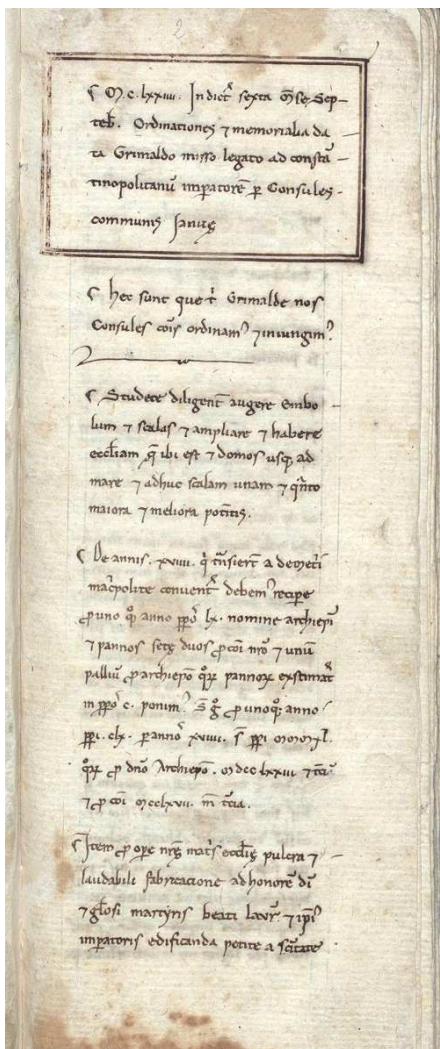 2
M.c.lxxiiii. Indict sexta mse Sep-
teb. Ordinationes 7 memorialia da-
ta Grimaldo misso legato ad consta-
tinopolitanu imperatore p Consules
communis Janue
hec sunt que t Grimalde nos
Consules cois ordinam 7 iniungim
Studete diligent augere Embo-
lum 7 scalas 7 ampliare 7 habere
eccliam q ibi est 7 domos usq ad
mare 7 adhuc scalam unam 7 qnto
maiora 7 meliora potitis.
De annis. xviiii. q tnsiert a demetri
macpolite convent debem recipe
p uno qq anno ppo lx. nomine archiepi
7 pannos sete duos p coi nro 7 unu
palliu p archiepo qr pannor exstimat
in ppo c. ponim. p unoq anno
ppi. clx. p anno xviiii. s ppi
qr p dno Archiepo. mdcclxxiii 7 tcia
7 p coi mcclxvii. m tcia.
Item p ope nre matis ecclie pulcra 7
laudabili fabricacione ad honore di
7 glosi martyris beati laur 7 ipi
imperatoris edificanda petite a scitate